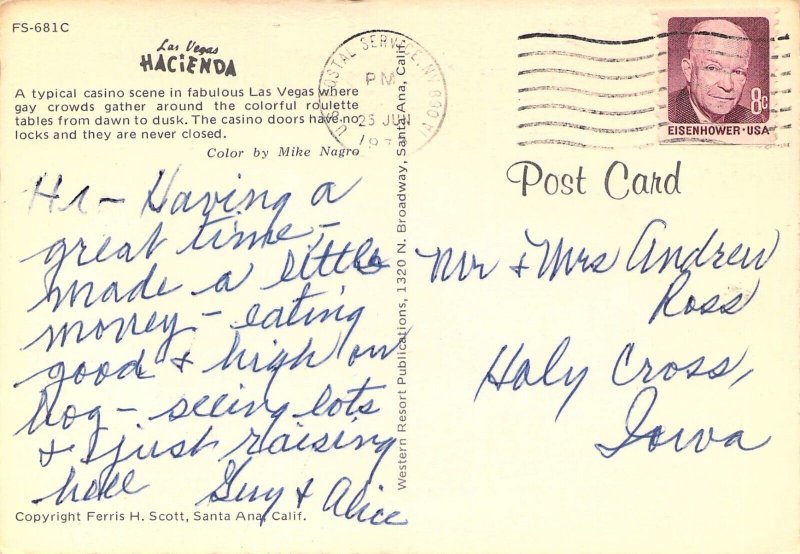 FS-681C
Las Vegas
HACIENDA
A typical casino scene in fabulous Las Vegas where
gay crowds gather around the colorful roulette
tables from dawn to dusk. The casino doors have no
locks and they are never closed.
Color by Mike Nagro
Hi - Having a
great time -
made a little
money - eating
good & high on
hog - seeing lots
& just raising
hell Guy & Alice
Copyright Ferris H. Scott, Santa Ana, Calif.
Western Resort Publications, 1320 N. Broadway, Santa Ana, Calif.
POSTAL SERVICE, NV 890
PM
25 JUN
8c
EISENHOWER·USA
Post Card
Mr & Mrs Andrew
Ross
Holy Cross,
Iowa